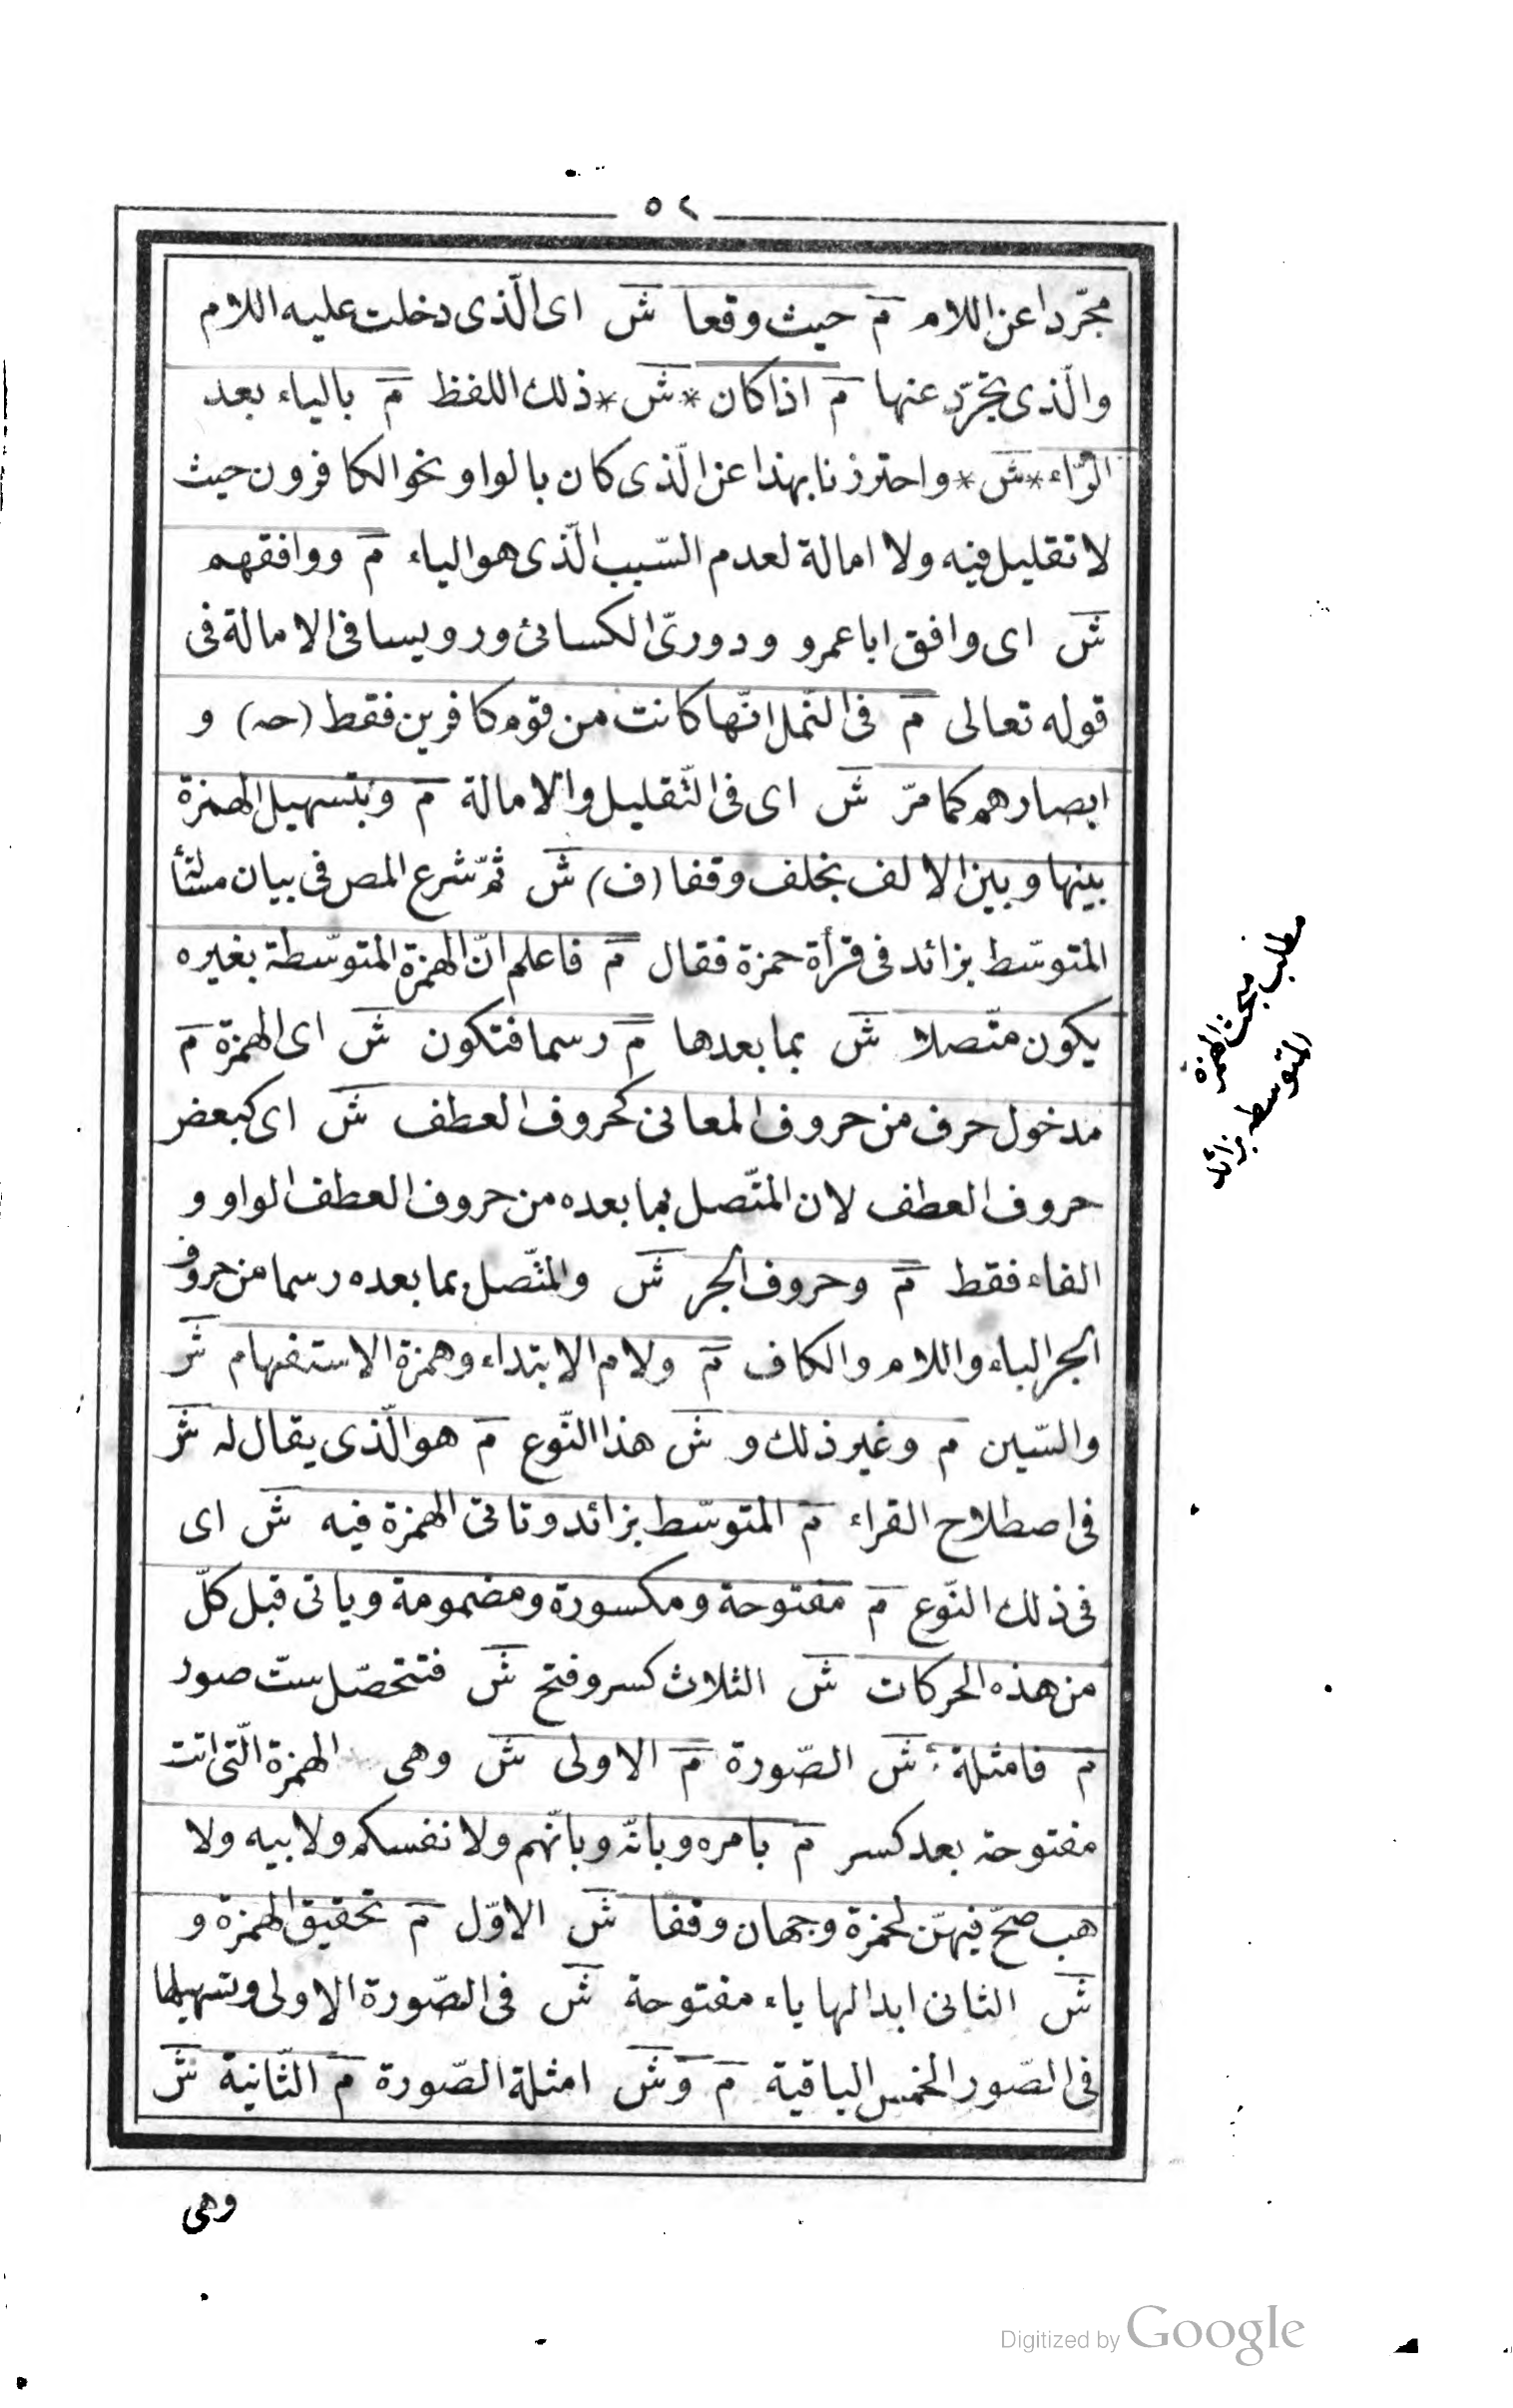 ٥٢
مجّردا عن اللام م حيث وقعا ش اى الّذى دخلت عليه اللام
والّذى تجّرد عنها م اذا كان * ش * ذلك اللفظ م بالياء بعد
الرّاء * ش * واحترزنا بهذا عن الّذى كان بالواو نحو الكافرون حيث
لا تقليل فيه ولا امالة لعدم السّبب الّذى هو الياء م ووافقهم
ش اى وافق ابا عمرو ودورىّ الكسائى ورويسا فى الامالة فى
قوله تعالى م فى النّمل انّها كانت من قوم كافرين فقط (حه) و
ابصارهم كما مرّ ش اى فى التّقليل والامالة م وبتسهيل الهمزة
بينها وبين الالف بخلف وقفا (ف) ش ثمّ شرع المص فى بيان مسئلة
المتوسّط بزائد فى قرأة حمزة فقال م فاعلم انّ الهمزة المتوسّطة بغيره
يكون متّصلا ش بما بعدها م رسما فتكون ش اى الهمزة م
مدخول حرف من حروف المعانى كحروف العطف ش اى كبعض
حروف العطف لان المتّصل بما بعده من حروف العطف الواو و
الفاء فقط م وحروف الجر ش والمتّصل بما بعده رسما من حروف
الجر الباء واللام والكاف م ولام الابتداء وهمزة الاستفهام ش
والسّين م وغير ذلك و ش هذا النّوع م هو الّذى يقال له ش
فى اصطلاح القراء م المتوسّط بزائد وتاتى الهمزة فيه ش اى
فى ذلك النّوع م مفتوحة ومكسورة ومضمومة وياتى قبل كلّ
من هذه الحركات ش الثلاث كسر وفتح ش فتتحصّل ستّ صور
م فامثلة ش الصّورة م الاولى ش وهى الهمزة الّتى اتت
مفتوحة بعد كسر م بامره وبانّه وبانّهم ولانفسكم ولابيه ولا
هب صحّ فيهنّ لحمزة وجهان وقفا ش الاوّل م تحقيق الهمزة و
ش الثانى ابدالها ياء مفتوحة ش فى الصّورة الاولى وتسهيلها
فى الصّور الخمس الباقية م و ش امثلة الصّورة م الثّانية ش
وهى
مطلب مبحث الهمزة
المتوسطه بزائد
Digitized by Google